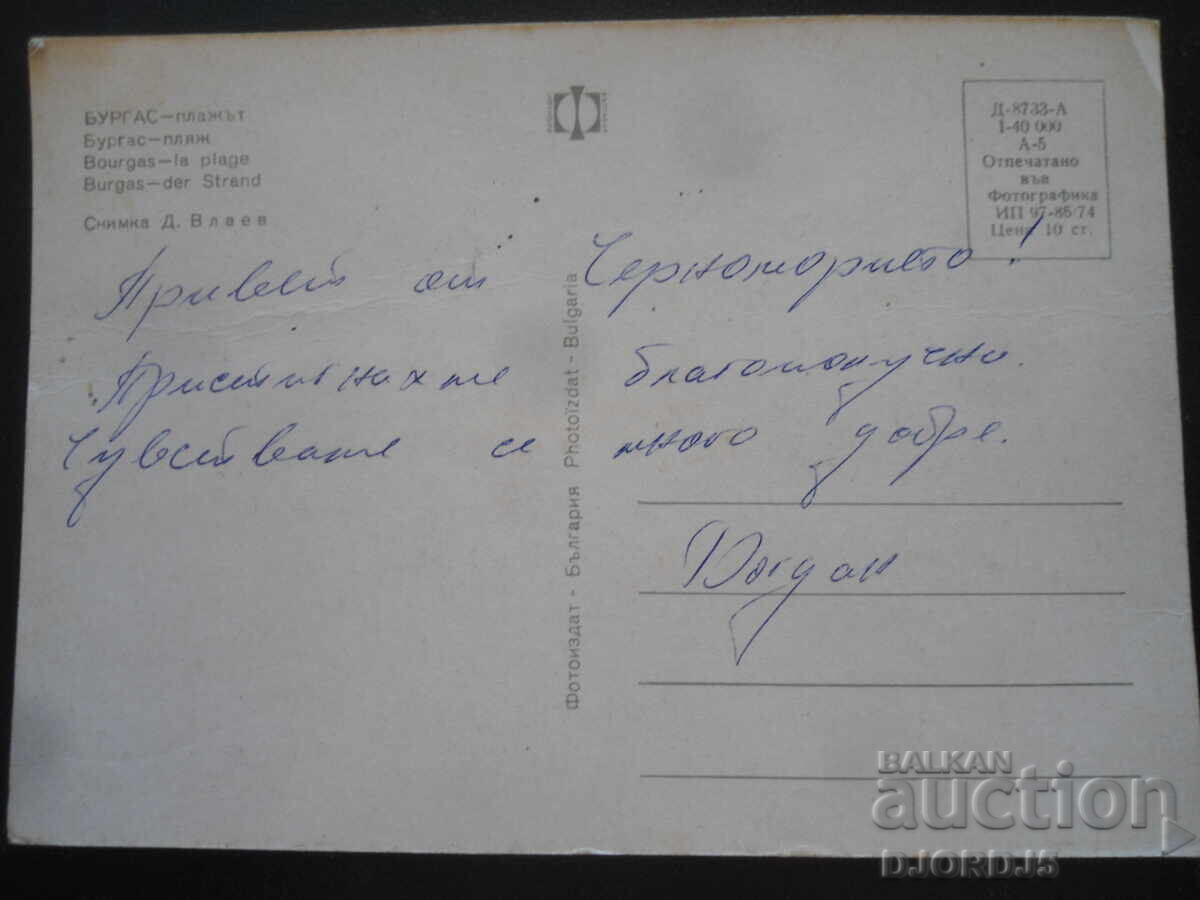 БУРГАС—плажът
Бургас—пляж
Bourgas—la plage
Burgas—der Strand
Снимка Д. Влаев
Д-8733-А
1-40 000
А-5
Отпечатано
във
Фотографика
ИП 97-85/74
Цена 10 ст.
Привет от Черноморието!
Пристигнахме благополучно.
Чувстваме се много добре.
Фотоиздат - България Photoizdat - Bulgaria
BALKAN
auction
DJORDJ5